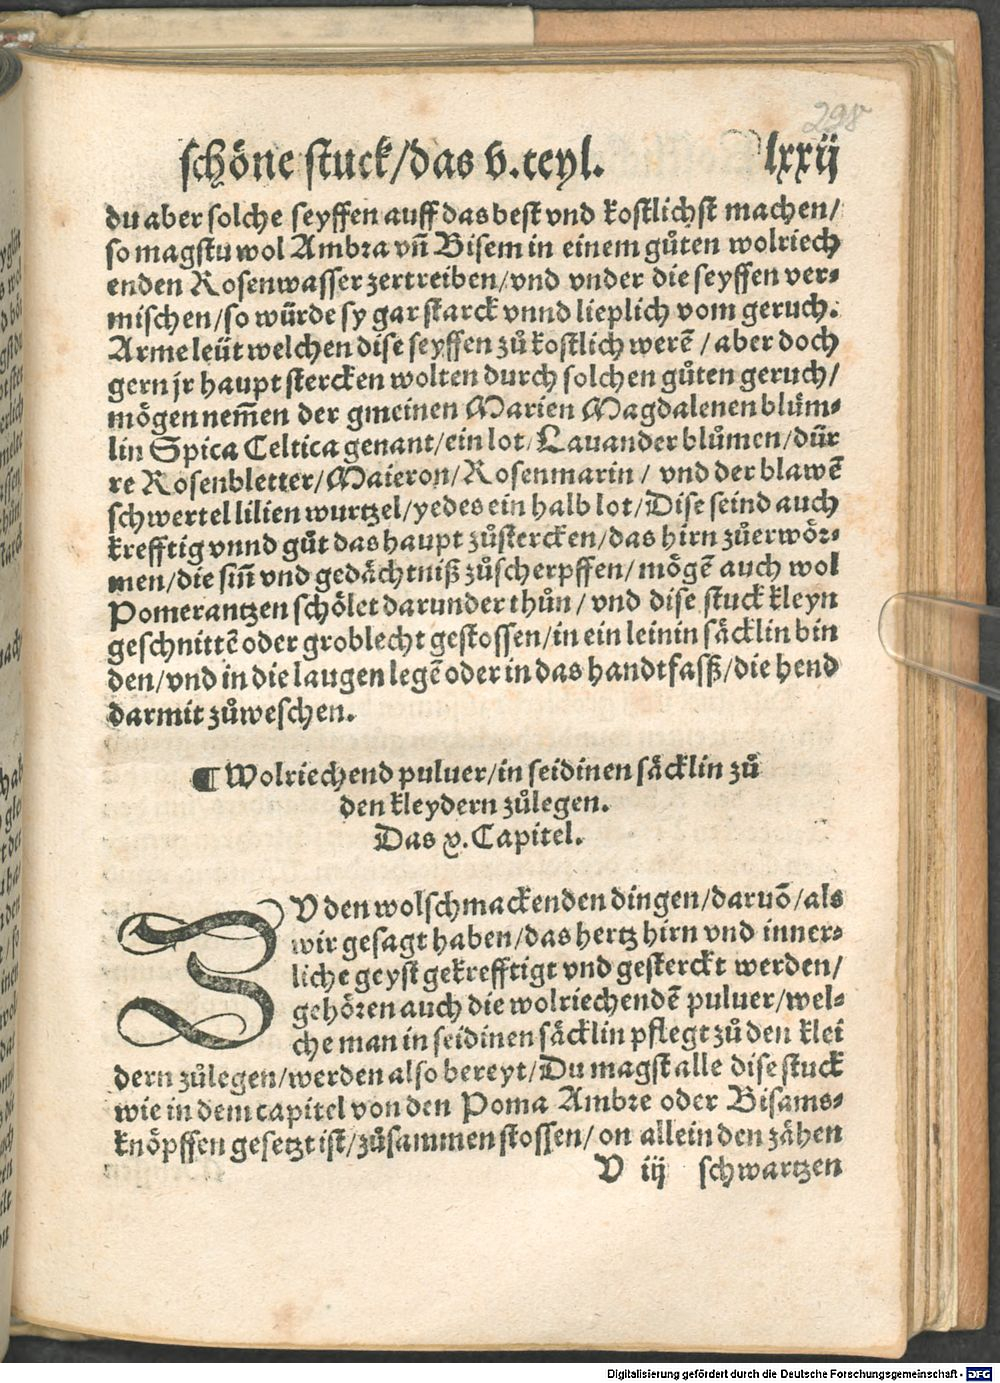 298
schöne stuck/das v.teyl. lxxij
du aber solche seyffen auff das best vnd kostlichst machen/
so magstu wol Ambra vñ Bisem in einem gůten wolriech
enden Rosenwasser zertreiben/vnd vnder die seyffen ver⸗
mischen/so würde sy gar starck vnnd lieplich vom geruch.
Arme leüt welchen dise seyffen zů kostlich werẽ/aber doch
gern jr haupt stercken wolten durch solchen gůten geruch/
mögen nem̃en der gmeinen Marien Magdalenen blům⸗
lin Spica Celtica genant/ein lot/Lauander blůmen/dür
re Rosenbletter/Maieron/Rosenmarin/vnd der blawẽ
schwertel lilien wurtzel/yedes ein halb lot/Dise seind auch
krefftig vnnd gůt das haupt zůstercken/das hirn zůerwör⸗
men/die siñ vnd gedächtniß zůscherpffen/mögẽ auch wol
Pomerantzen schölet darunder thůn/vnd dise stuck kleyn
geschnittẽ oder groblecht gestossen/in ein leinin säcklin bin
den/vnd in die laugen legẽ oder in das handtfasß/die hend
darmit zůweschen.
¶ Wolriechend puluer/in seidinen säcklin zů
den kleydern zůlegen.
Das v. Capitel.
ZV den wolschmackenden dingen/daruõ/als
wir gesagt haben/das hertz hirn vnd inner⸗
liche geyst gekrefftigt vnd gesterckt werden/
gehören auch die wolriechendẽ puluer/wel⸗
che man in seidinen säcklin pflegt zů den klei
dern zůlegen/werden also bereyt/Du magst alle dise stuck
wie in dem capitel von den Poma Ambre oder Bisams⸗
knöpffen gesetzt ist/zůsammen stossen/on allein den zähen
V iij schwartzen
Digitalisierung gefördert durch die Deutsche Forschungsgemeinschaft - DFG